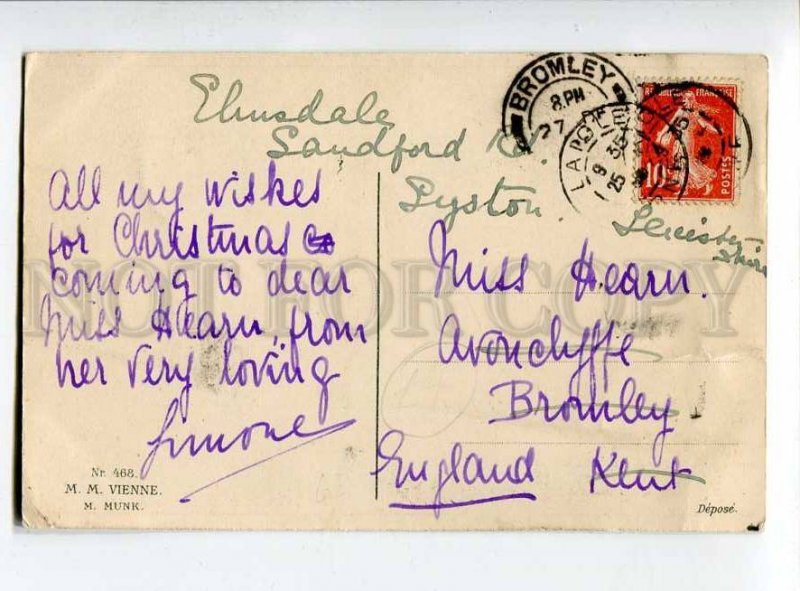 BROMLEY
8.PM
27
REPUBLIQUE FRANÇAISE
10
POSTES
9 35
25
15
Elmsdale
Sandford Rd.
Syston.
Leicester
shire
All my wishes
for Christmas
coming to dear
Miss Hearn, from
her very loving
Simone
Miss Hearn.
Avoncliffe
Bromley
England Kent
Nr. 468.
M. M. VIENNE.
M. MUNK.
Déposé.
NOT FOR COPY